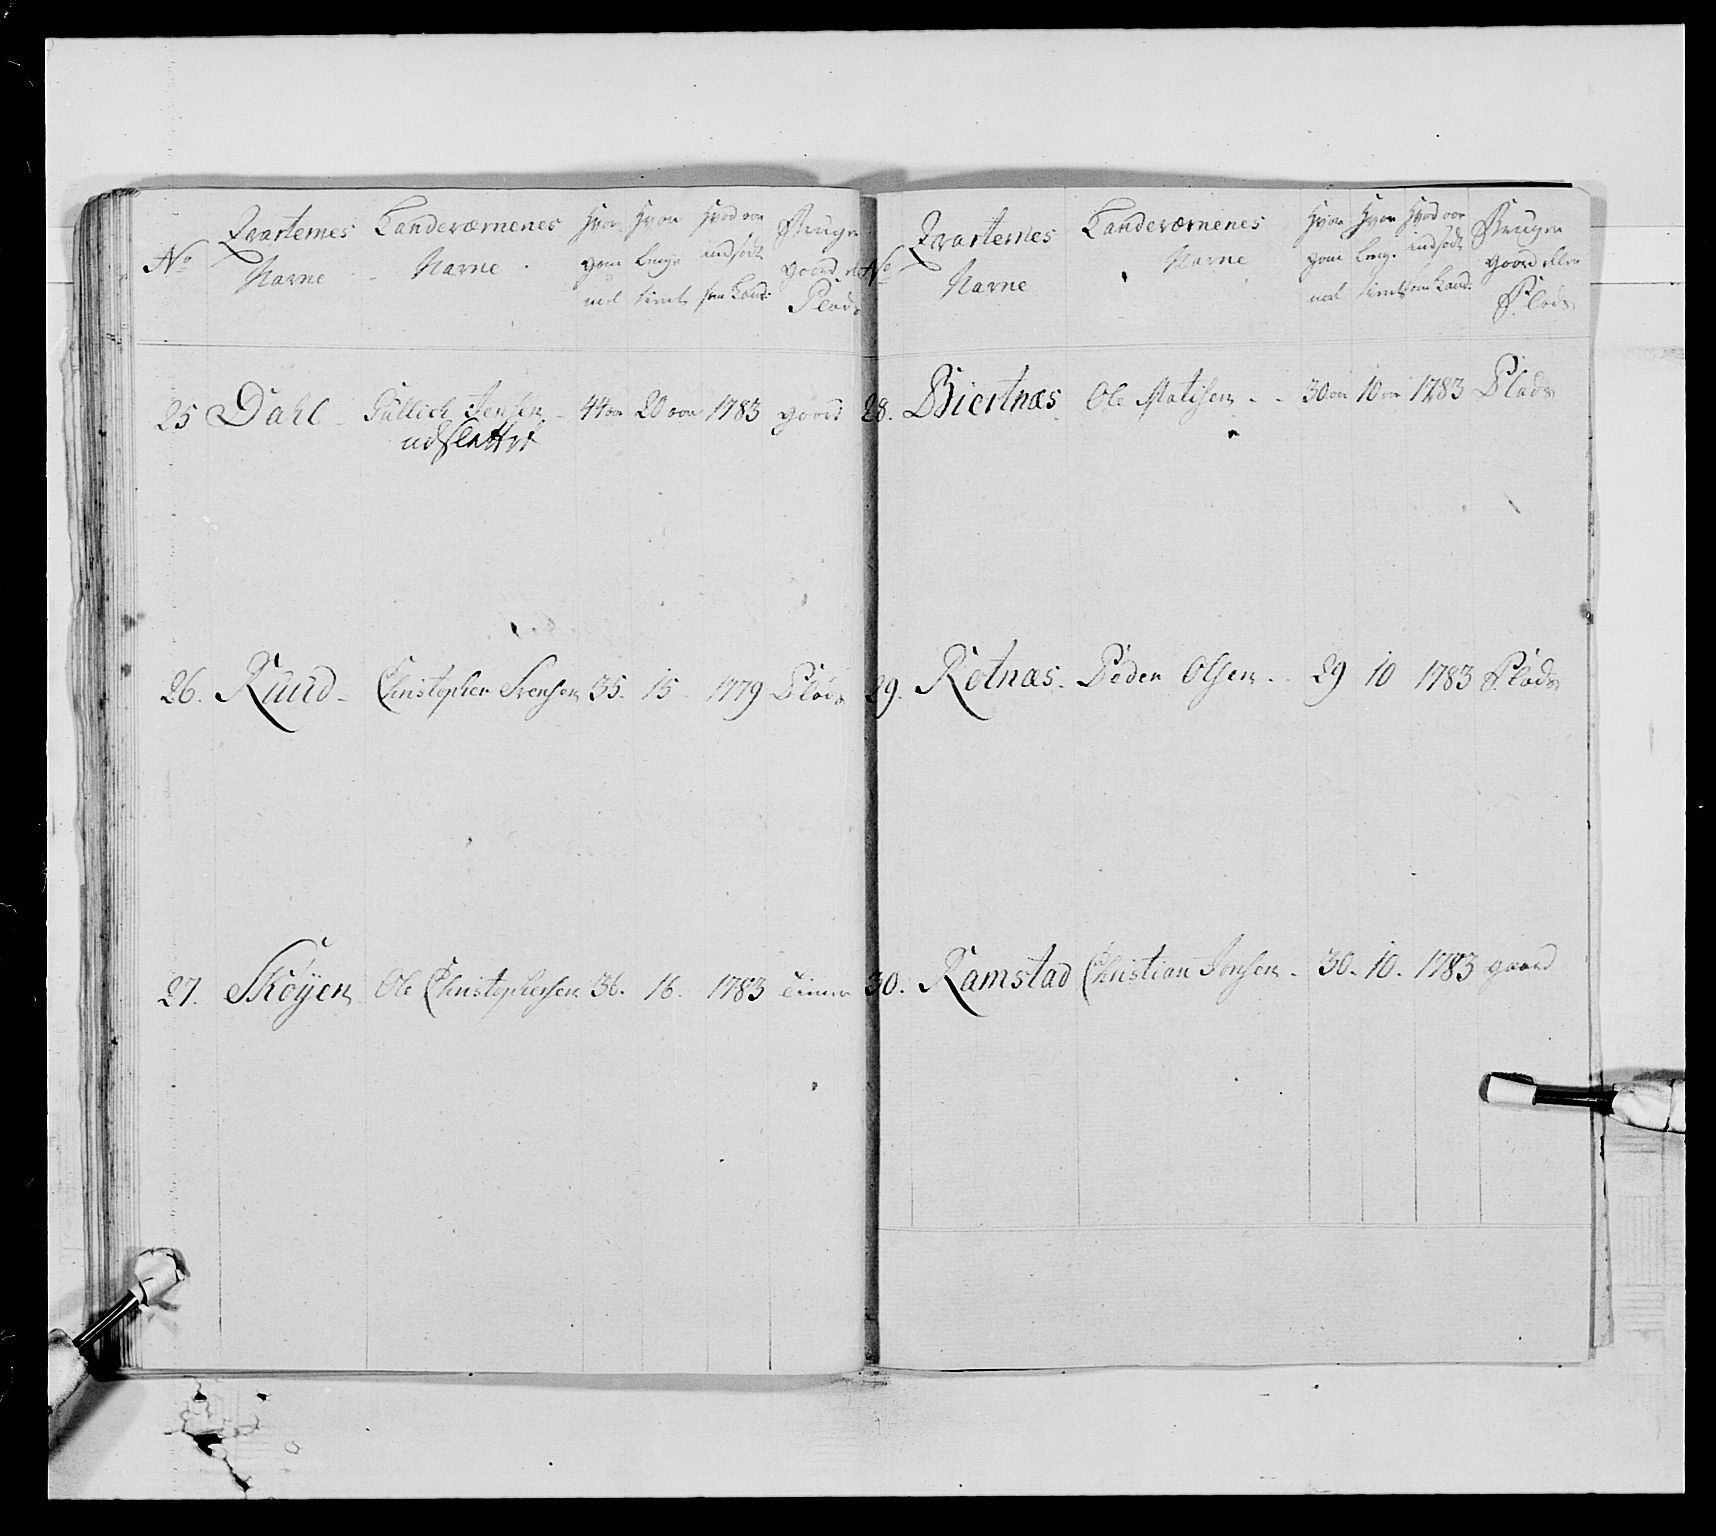 No Qvarternes Navne Landeværnenes Navne Hvor gam mel Hvor lenge tient Hvad aar indsodt som Land: Bruger gaard el Plads
25 Dahl Gullich Jensen 44 aar 20 aar 1783 gaard
udslettet
26. Ruud Christopher Svensen 35. 15 1779 Plads
27. Skøyen Ole Christophersen 36. 16. 1783
No Qvarternes Navne Landeværnenes Navne Hvor gam mel Hvor leng. tient Hvad aar indsodt som Land: Bruger gaard eller Plads
28. Biertnæs Ole Matisen 30 aar 10 aar 1783 Plads
29. Rotnæs. Peder Olsen 29 10 1783 Plads
30. Ramstad Christian Jensen 30. 10. 1783 gaard